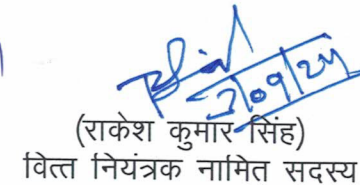 (राकेश कुमार सिंह)
वित्त नियंत्रक नामित सदस्य